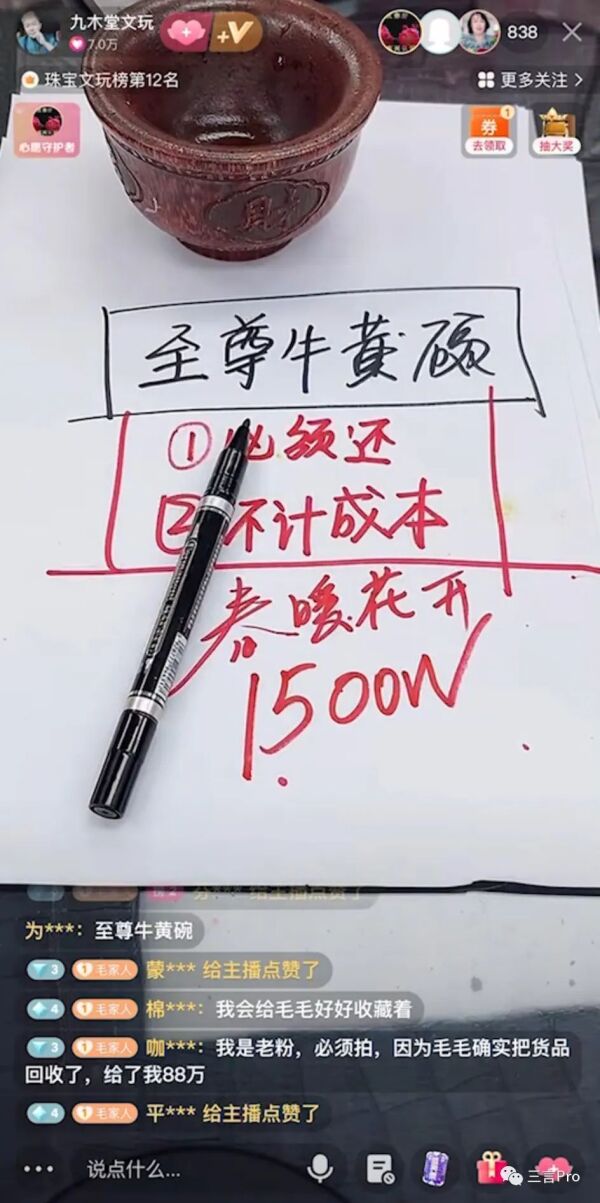 九木堂文玩
7.0万
+V
838
珠宝文玩榜第12名
更多关注
心愿守护者
券
1
去领取
抽大奖
财
至尊牛黄碗
①必须还
②不计成本
春暖花开
1500W
给主播点赞了
为***：至尊牛黄碗
3 毛家人 蒙*** 给主播点赞了
4 棉***：我会给毛毛好好收藏着
3 毛家人 咖***：我是老粉，必须拍，因为毛毛确实把货品
回收了，给了我88万
4 毛家人 平*** 给主播点赞了
说点什么...
三言Pro